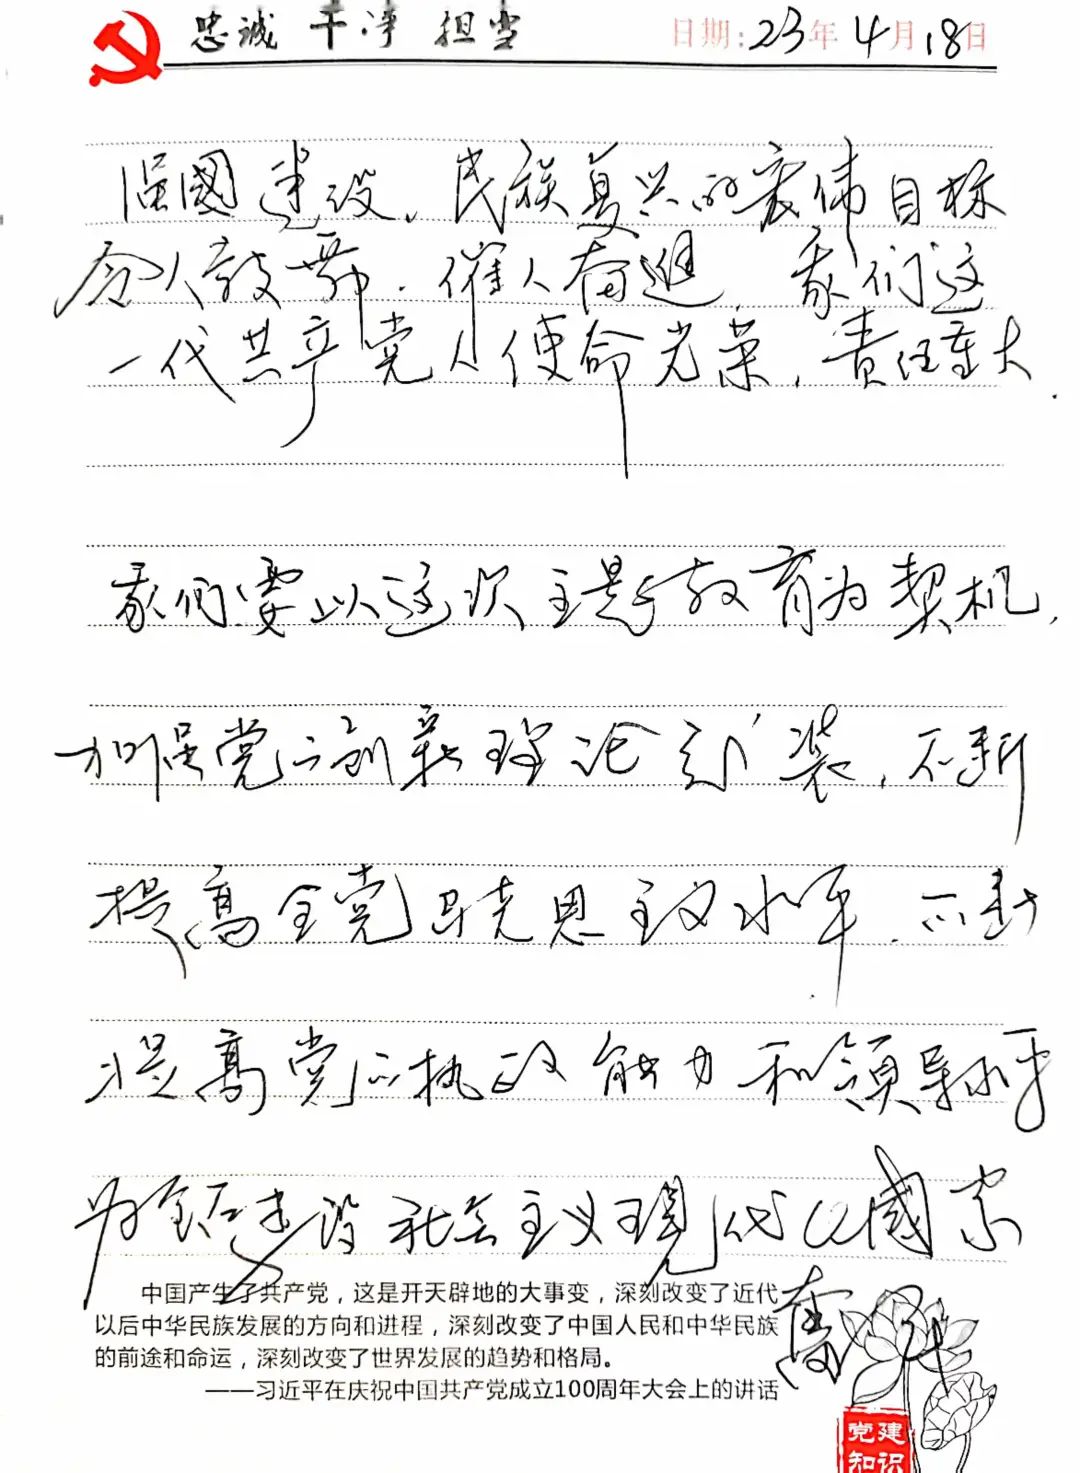 忠诚 干净 担当
日期:23年4月18日
强國建设、民族复兴的宏伟目标
令人鼓舞,催人奋进,我们这
一代共产党人使命光荣,责任重大.
我们要以这次主题教育为契机,
加强党的创新理论武装,不断
提高全党马克思主义水平,不断
提高党的执政能力和領导水平
为全面建设社会主义現代化國家
奮斗
中国产生了共产党,这是开天辟地的大事变,深刻改变了近代
以后中华民族发展的方向和进程,深刻改变了中国人民和中华民族
的前途和命运,深刻改变了世界发展的趋势和格局。
——习近平在庆祝中国共产党成立100周年大会上的讲话
党建
知识